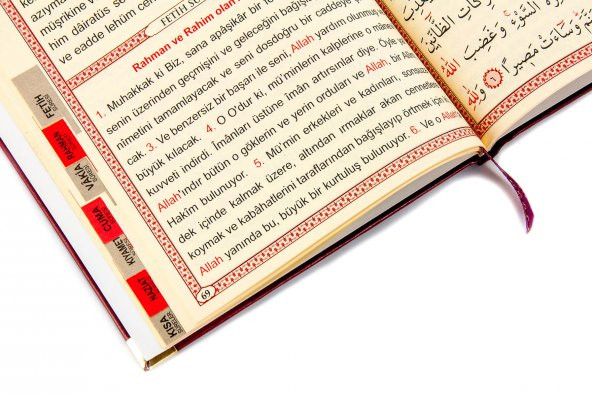 müşrikîne v
him dâiratüs
ve eadde lehüm cehen
FETİH SÛ
Rahman ve Rahim olan
1. Muhakkak ki Biz, sana apâşikâr bir
senin üzerinden geçmişini ve geleceğini bağışla
nîmetini tamamlayacak ve seni dosdoğru bir caddeye
cak. 3. Ve benzersiz bir başarı ile seni, Allah yardım olunmuş
büyük kılacak. 4. O O'dur ki, mü'minlerin kalplerine o mâ
kuvveti indirdi. Îmânları üstüne îmân artırsınlar diye. Öyle
Allah'ındır bütün o göklerin ve yerin orduları ve Allah, bir Alîm
Hakîm bulunuyor. 5. Mü'min erkekleri ve kadınları, sonsuz
dek içinde kalmak üzere, altından ırmaklar akan cennetler
koymak ve kabâhatlerini taraflarından bağışlayıp örtmek için
Allah yanında bu, büyük bir kurtuluş bulunuyor. 6. Ve o
69
السَّوْءِ وَغَضِبَ اللّٰهُ
وَسَاءَتْ مَصِيرًا ٦ وَلِلّٰهِ
FETİH
RAHMAN
VAKIA
CUMA
KIYAMET
NAZİAT
KISA
SURELER